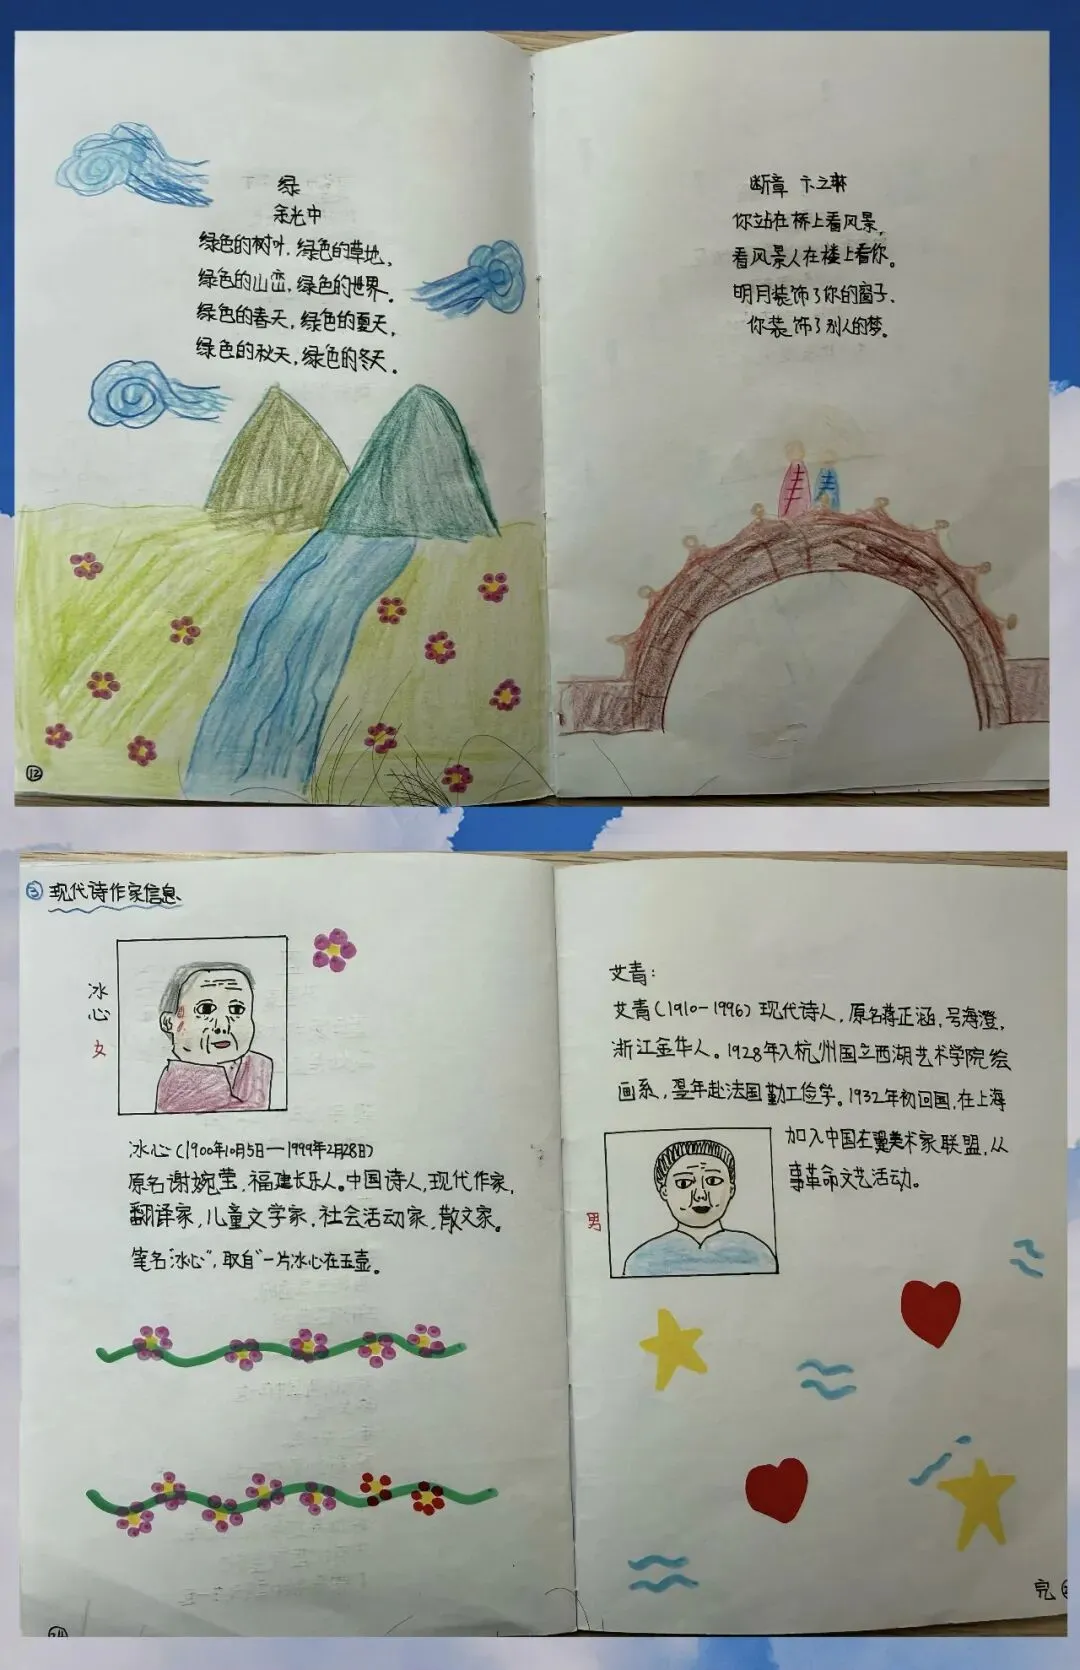 绿
余光中
绿色的树叶，绿色的草地，
绿色的山峦，绿色的世界。
绿色的春天，绿色的夏天，
绿色的秋天，绿色的冬天。
12
断章 卞之琳
你站在桥上看风景，
看风景人在楼上看你。
明月装饰了你的窗子，
你装饰了别人的梦。
③ 现代诗作家信息
冰心
女
冰心（1900年10月5日—1999年2月28日）
原名谢婉莹，福建长乐人。中国诗人，现代作家，
翻译家，儿童文学家，社会活动家，散文家。
笔名“冰心”，取自“一片冰心在玉壶。
24
艾青：
艾青（1910-1996）现代诗人，原名蒋正涵，号海澄，
浙江金华人。1928年入杭州国立西湖艺术学院绘
画系，翌年赴法国勤工俭学。1932年初回国，在上海
加入中国左翼美术家联盟，从
事革命文艺活动。
男
完